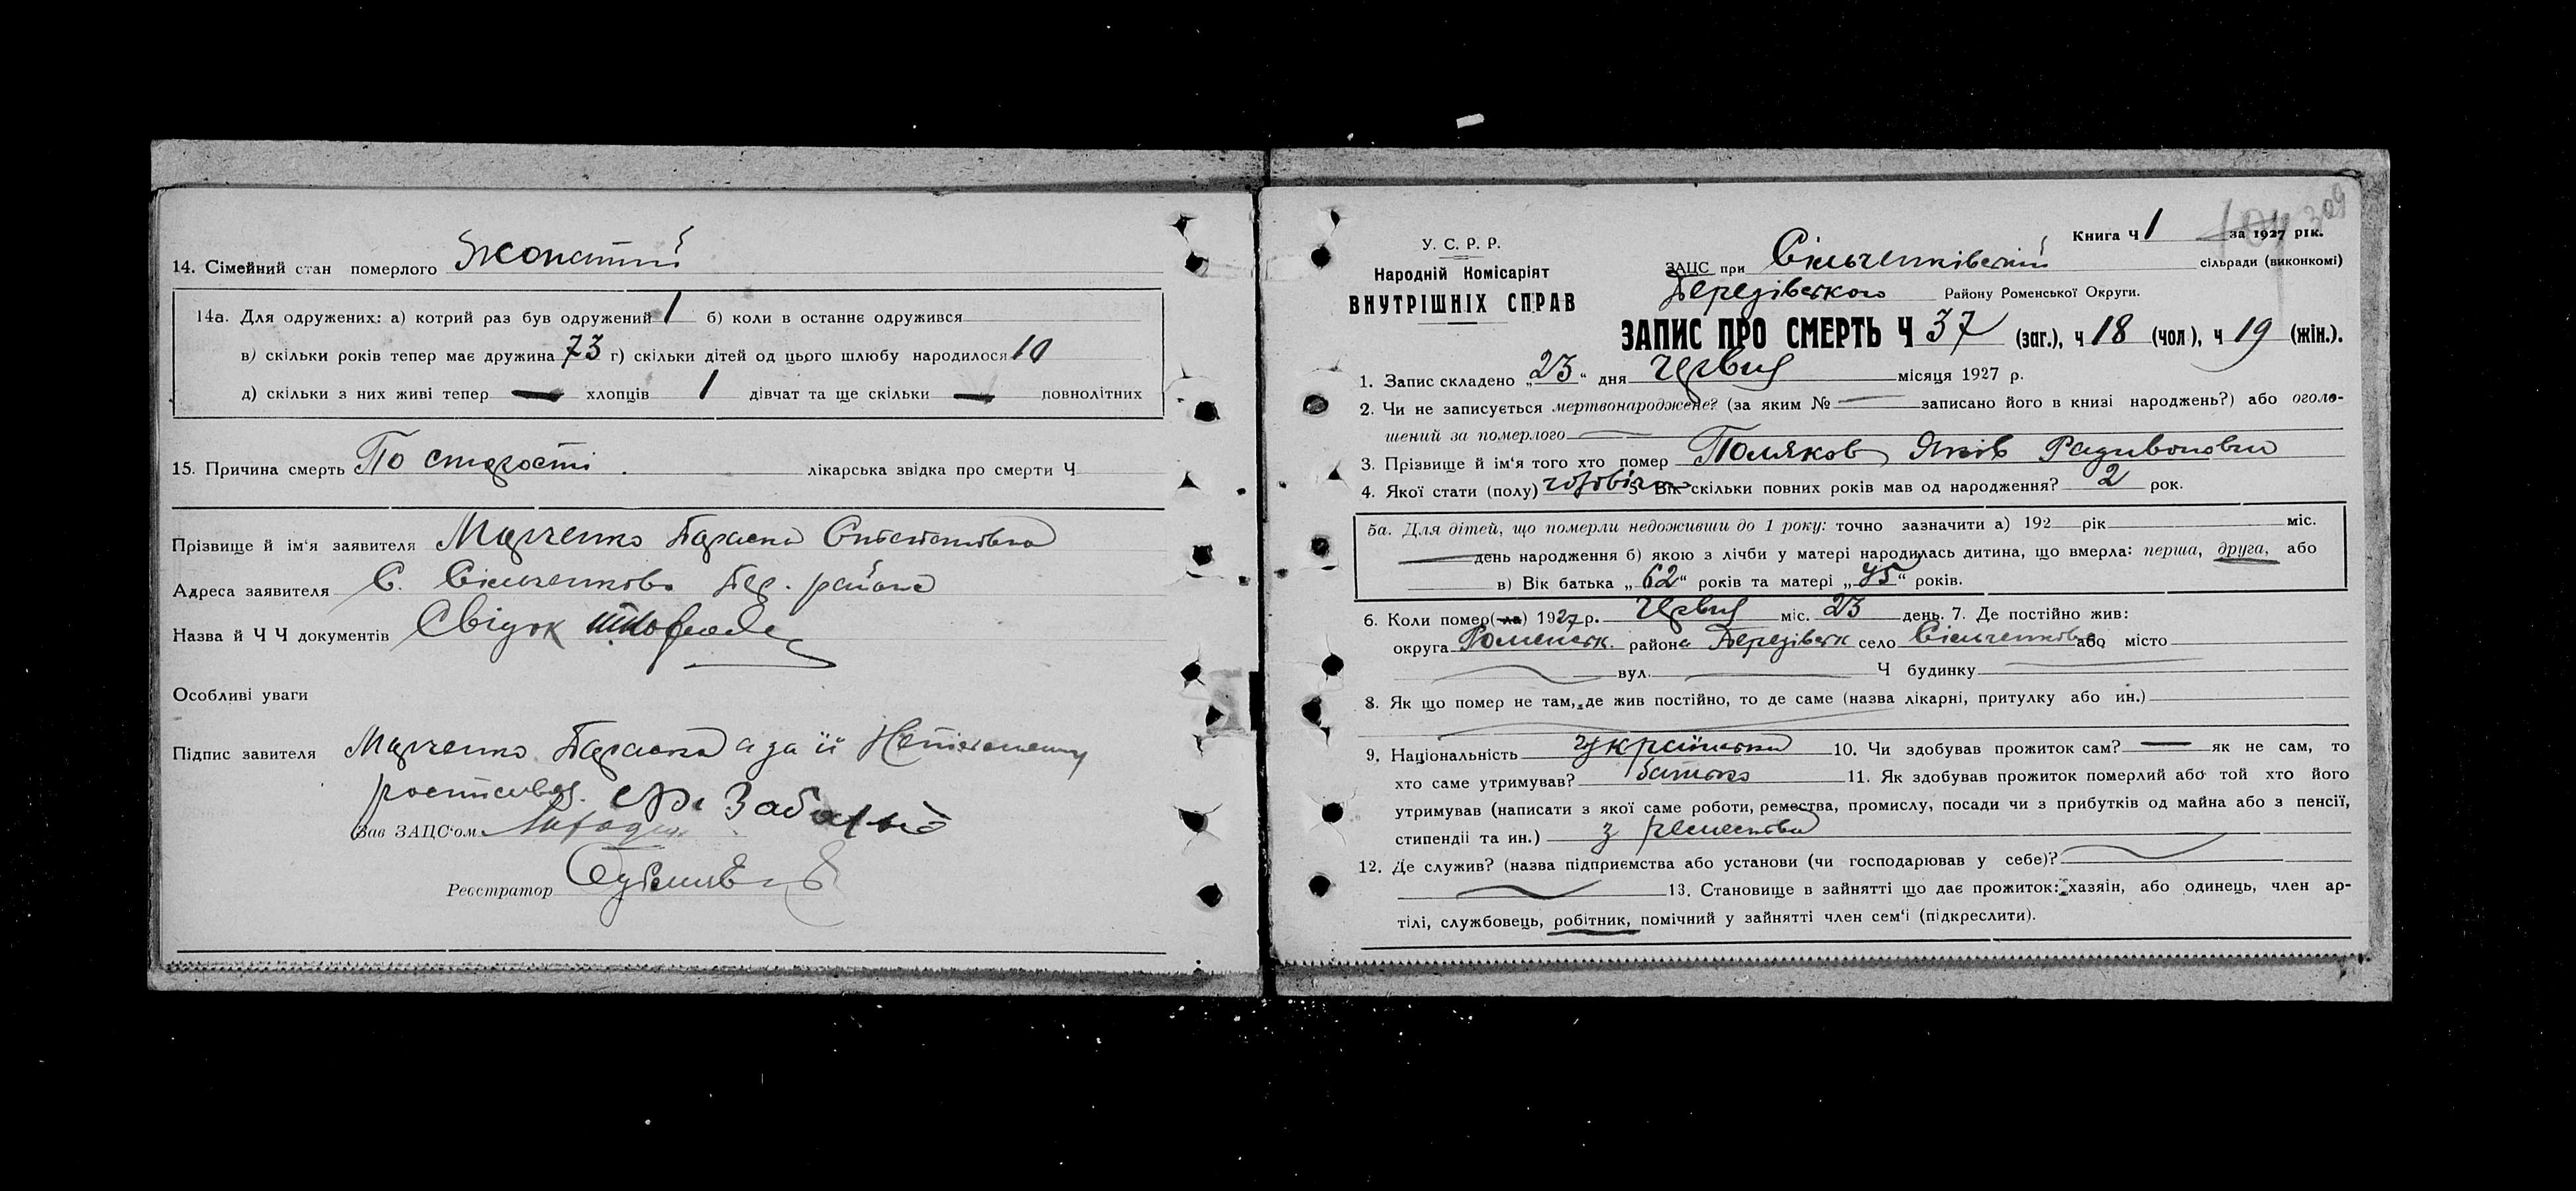 14. Сімейний стан померлого Жонатий
14а. Для одружених: а) котрий раз був одружений 1 б) коли в останнє одружився
в) скільки років тепер має дружина 73 г) скільки дітей од цього шлюбу народилося 10
д) скільки з них живі тепер — хлопців 1 дівчат та ще скільки — повнолітних
15. Причина смерть По старості. лікарська звідка про смерти Ч
Прізвище й ім‘я заявителя Марченко Параска
Адреса заявителя С. Сільченково Бер. района
Назва й Ч Ч документів Свідок
Особливі уваги
Підпис завителя Марченко Параска а за її Неписьменну
росписався
Зав ЗАЦС‘ом
Реєстратор
309
Книга Ч 1 за 1927 рік.
У. С. Р. Р.
Народній Комісаріят
ВНУТРІШНІХ СПРАВ
ЗАЦС при Сільченківський сільради (виконкомі)
Березівського Району Роменської Округи.
ЗАПИС ПРО СМЕРТЬ Ч 37 (заг.), ч 18 (чол), ч 19 (жін.).
1. Запис складено „23“ дня Червня місяця 1927 р.
2. Чи не записується мертвонароджене? (за яким № — записано його в книзі народжень?) або оголо-
шений за померлого —
3. Прізвище й ім‘я того хто помер Поляков Яків Радивонович
4. Якої стати (полу) чоловіч 5. Вік скільки повних років мав од народження? 2 рок.
5а. Для дітей, що померли недоживши до 1 року: точно зазначити а) 192 рік міс.
— день народження б) якою з лічби у матері народилась дитина, що вмерла: перша, друга, або
в) Вік батька „62“ років та матері „45“ років.
6. Коли помер(ла) 1927 р. Червня міс. 23 день. 7. Де постійно жив:
округа Роменськ. района Березівськ село Сільченково або місто
вул. Ч будинку
8. Як що помер не там, де жив постійно, то де саме (назва лікарні, притулку або ин.)
9. Національність українська 10. Чи здобував прожиток сам? — як не сам, то
хто саме утримував? батько 11. Як здобував прожиток померлий або той хто його
утримував (написати з якої саме роботи, ремества, промислу, посади чи з прибутків од майна або з пенсії,
стипендії та ин.) з ремества
12. Де служив? (назва підприємства або установи (чи господарював у себе)?
13. Становище в зайнятті що дає прожиток: хазяїн, або одинець, член ар-
тілі, службовець, робітник, помічний у зайнятті член сем‘ї (підкреслити).